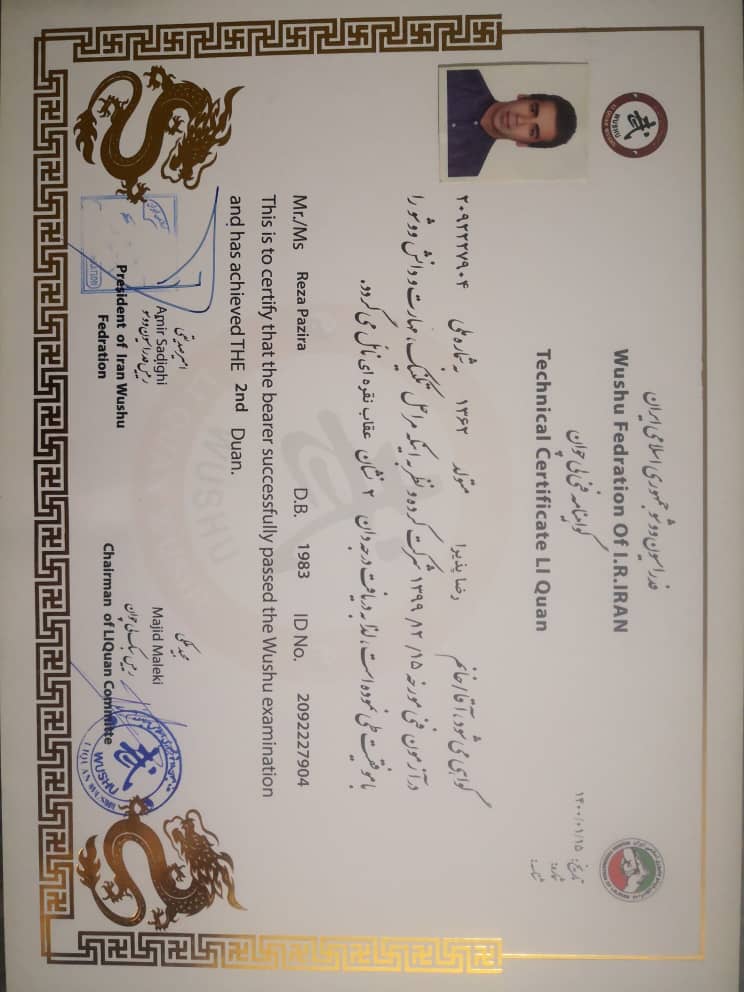 فدراسیون ووشو جمهوری اسلامی ایران
Wushu Fedration Of I.R.IRAN
گواهینامه فنی لی چوان
Technical Certificate LI Quan
تاریخ: ۱۴۰۰/۰۱/۱۵
شماره:
گواهی می شود، آقا/خانم رضا پذیرا متولد ۱۳۶۲ به شماره ملی ۲۰۹۲۲۲۷۹۰۴
در آزمون فنی مورخه ۱۳۹۹/۱۲/۱۵ شرکت کرده و نظر به اینکه مراحل تکنیک، مهارت و دانش ووشو را
با موفقیت طی نموده است، لذا به دریافت درجه دان ۲ نشان عقاب نقره ای نائل می گردد.
Mr./Ms Reza Pazira D.B. 1983 ID No. 2092227904
This is to certify that the bearer successfully passed the Wushu examination
and has achieved THE 2nd Duan.
امیر صدیقی
Amir Sadighi
رئیس فدراسیون ووشو
President of Iran Wushu
Fedration
مجید ملکی
Majid Maleki
رئیس سبک لی چوان
Chairman of LIQuan Committe
WUSHU
LI QUAN WUSHU